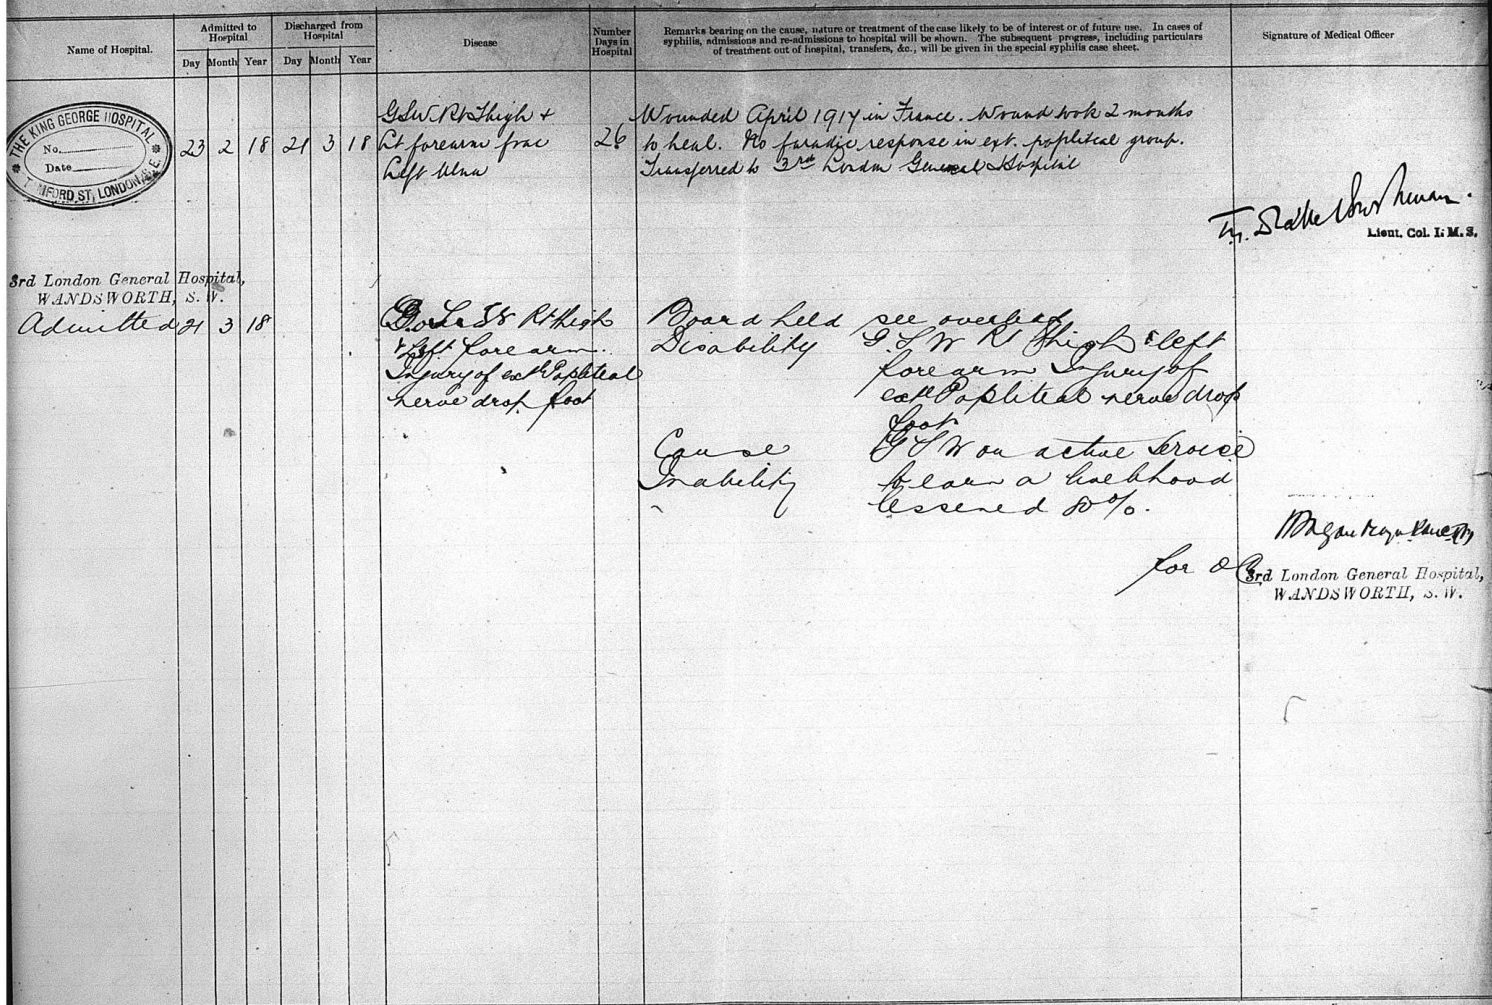 Name of Hospital.
Admitted to Hospital
Discharged from Hospital
Day Month Year Day Month Year
Disease
Number Days in Hospital
Remarks bearing on the cause, nature or treatment of the case likely to be of interest or of future use. In cases of
syphilis, admissions and re-admissions to hospital will be shown. The subsequent progress, including particulars
of treatment out of hospital, transfers, &c., will be given in the special syphilis case sheet.
Signature of Medical Officer
THE KING GEORGE HOSPITAL
No.
Date
STAMFORD ST, LONDON, S.E.
23 2 18 21 3 18
GSW Rt Thigh +
Lt forearm frac
Left Ulna
26
Wounded April 1917 in France. Wound took 2 months
to heal. No faradic response in ext. popliteal group.
Transferred to 3rd London General Hospital
Lieut. Col. I. M. S.
3rd London General Hospital,
WANDSWORTH, S.W.
Admitted 21 3 18
Rt thigh
& Left forearm.
Injury of extl Popliteal
nerve drop foot
Board held see overleaf
Disability G S W Rt thigh & left
forearm Injury of
extl Popliteal nerve drop
foot
Cause G S W on active Service
Inability to earn a livelihood
lessened 80%.
for O C
3rd London General Hospital,
WANDSWORTH, S.W.